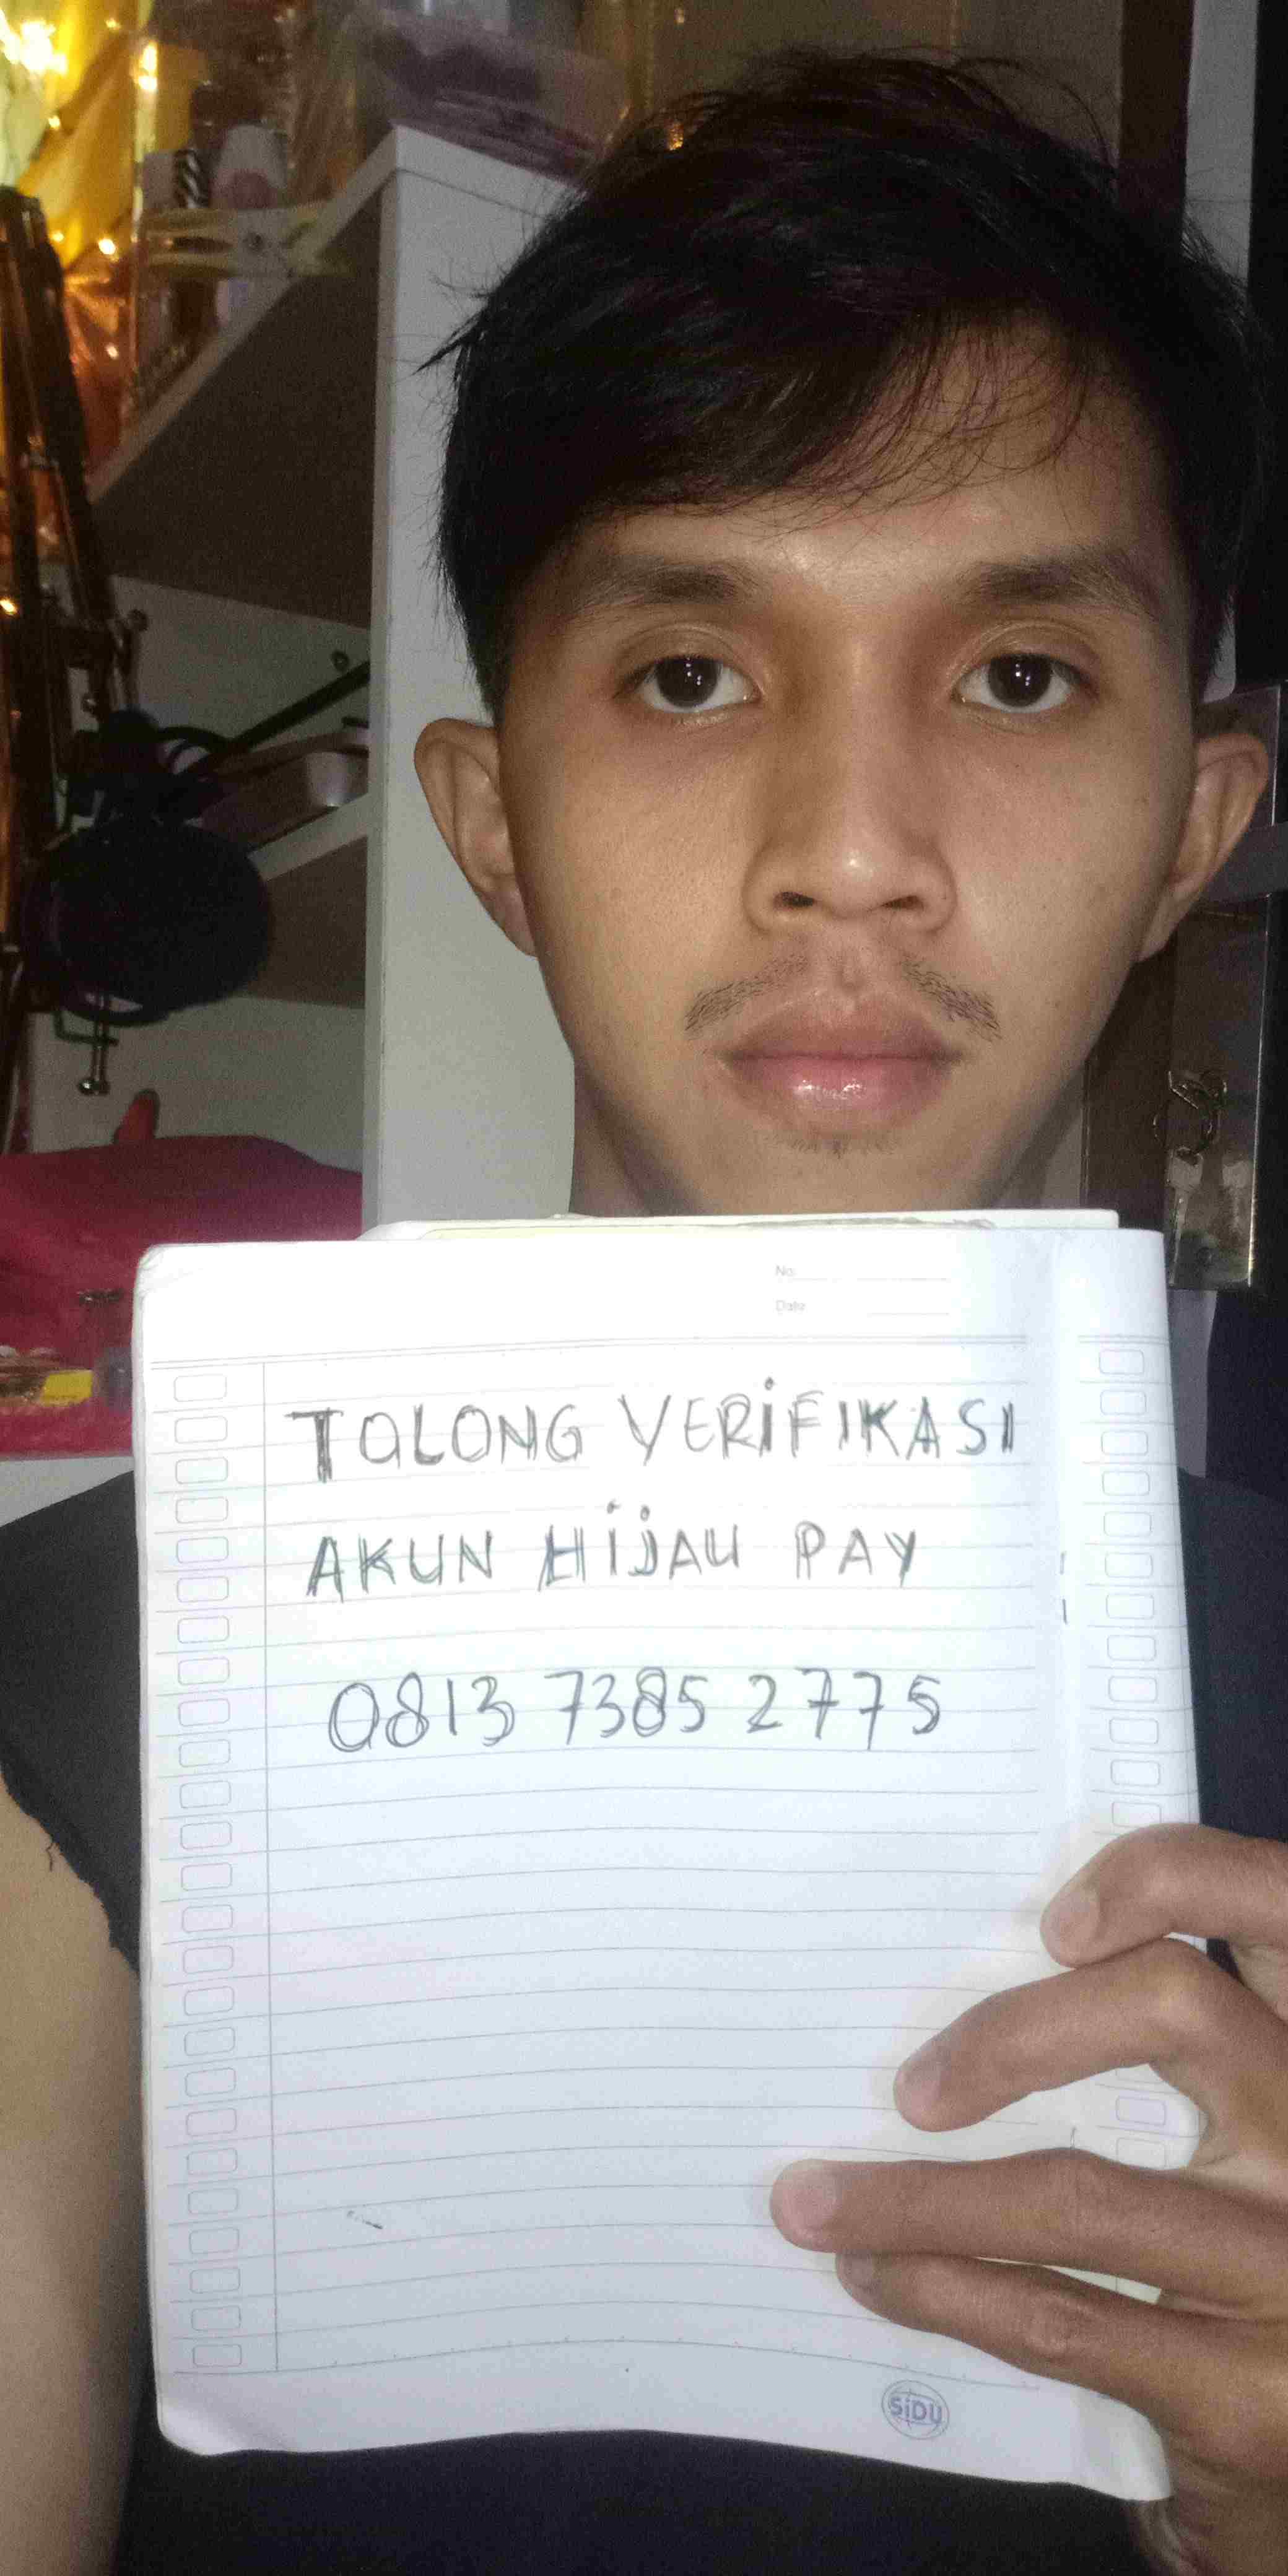 No.
Date
TOLONG VERIFIKASI
AKUN HIJAU PAY
0813 7385 2775
SiDU